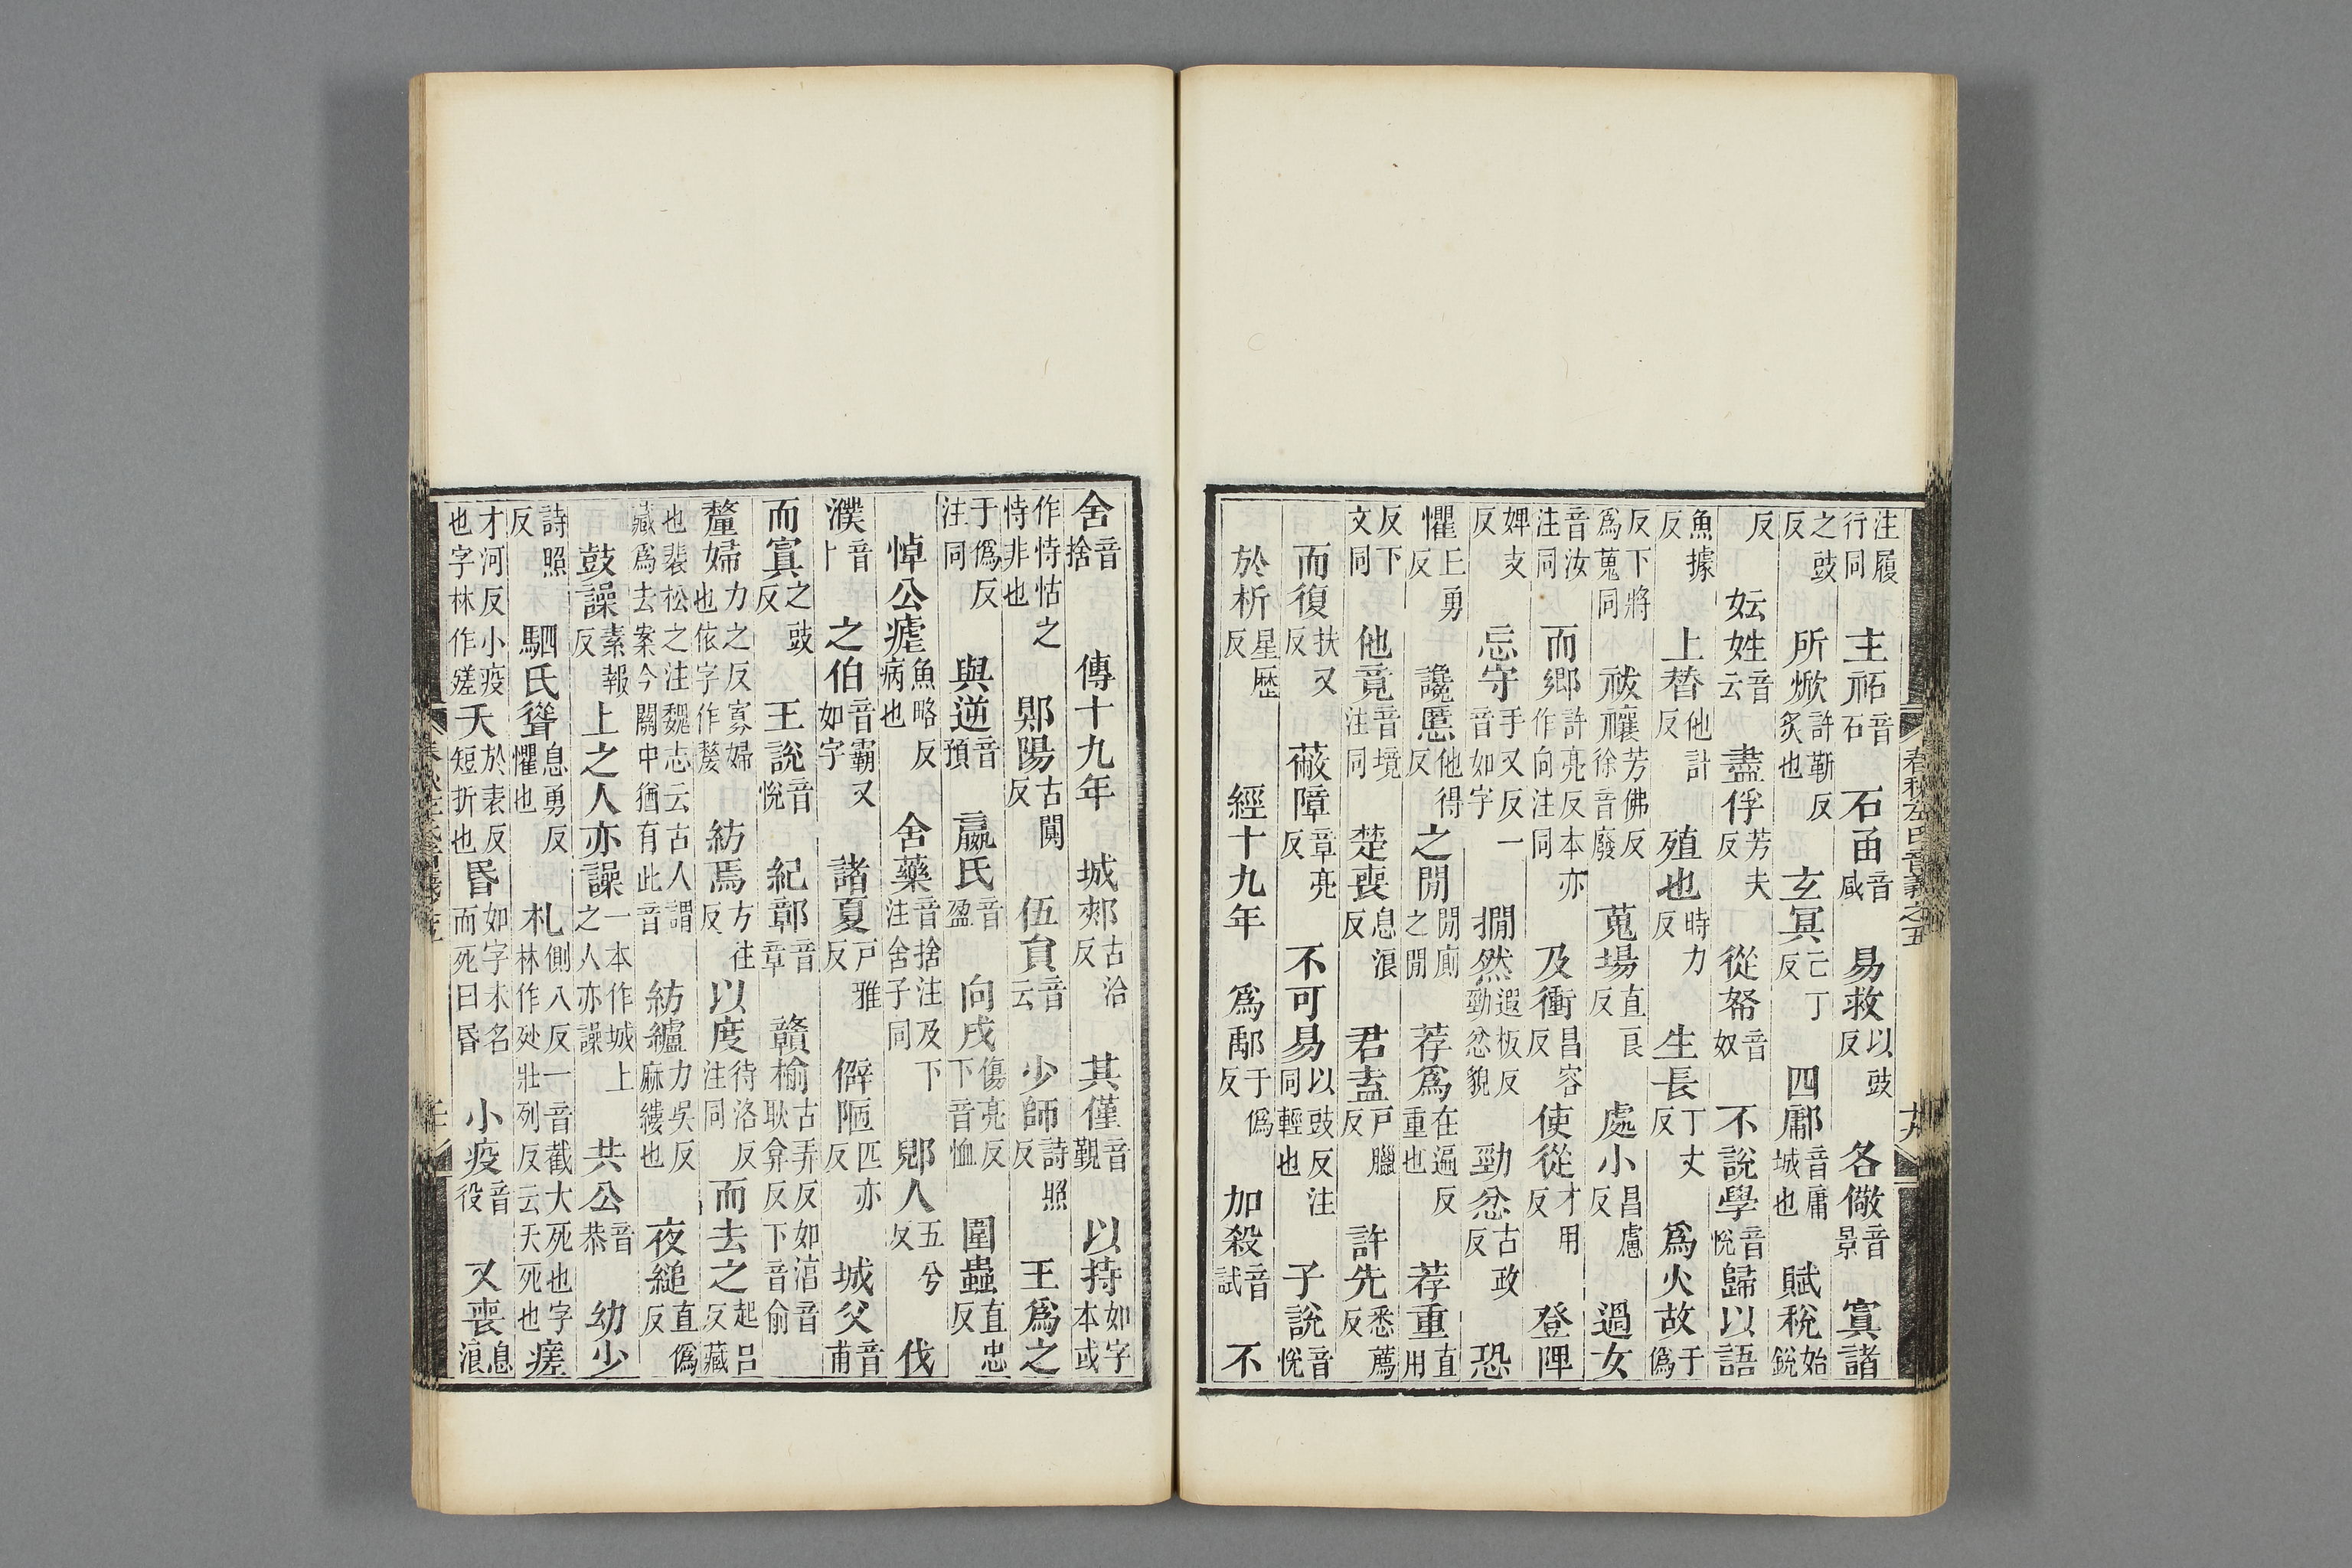 注履行同　主祏音石　石㐭音咸　易救以豉反　各儆音景　寘諸
之豉反　所焮許靳反炙也　玄冥亡丁反　四鄘音庸城也　賦稅始銳
反　妘姓音云　盡俘芳夫反　從帑音奴　不說學音悅　歸以語
魚據反　上替他計反　殖也時力反　生長丁丈反　為火故于偽
反下將為蒐同　祓禳芳佛反徐音廢　蒐場直良反　處小昌慮反　過女
音汝注同　而鄉許亮反本亦作向注同　及衝昌容反　使從才用反　登陴
婢支反　忘守手又反一音如字　撊然遐板反勁忿貌　勁忿古政反　恐
懼丘勇反　讒慝他得反　之閒閒廁之閒　荐為在遍反重也　荐重直用
反下文同　他竟音境注同　楚喪息浪反　君盍戶臘反　許先悉薦反
而復扶又反　蔽障章亮反　不可易以豉反注同輕也　子說音悅
於析星歷反　經十九年　為鄅于偽反　加殺音試　不
春秋左氏音義之五　十九
舍音捨　傳十九年　城郟古洽反　其僅音覲　以持如字本或
作恃怙之恃非也　郹陽古闃反　伍員音云　少師詩照反　王為之
于偽反注同　與逆音預　嬴氏音盈　向戌傷亮反下音恤　圍蟲直忠反
悼公瘧魚略反病也　舍藥音捨注及下注舍子同　郳人五兮反　伐
濮音卜　之伯音霸又如字　諸夏戶雅反　僻陋匹亦反　城父音甫
而寘之豉反　王說音悅　紀鄣音章　贛榆古弄反如淳音耿弇反下音俞
嫠婦力之反寡婦也依字作嫠　紡焉方往反　以度待洛反注同　而去之起呂反藏
也裴松之注魏志云古人謂藏為去案今關中猶有此音　紡纑力吳反麻縷也　夜縋直偽反
鼓譟素報反　上之人亦譟一本作城上之人亦譟　共公音恭　幼少
詩照反　駟氏聳息勇反懼也　札側八反一音截大死也字林作𣧑壯列反云夭死也　瘥
才河反小疫也字林作㾹　夭於表反短折也　昬如字未名而死曰昬　小疫音役　又喪息浪